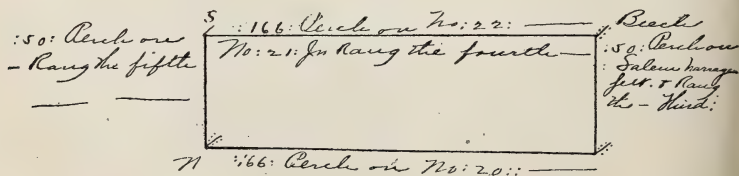 S
:166: Perch on No:22:
Beech
:50: Perch on
- Rang the fifth
No:21: In Rang the fourth
:50: Perch on
: Salem
& Rang
the - Third:
N
:166: Perch on No:20::